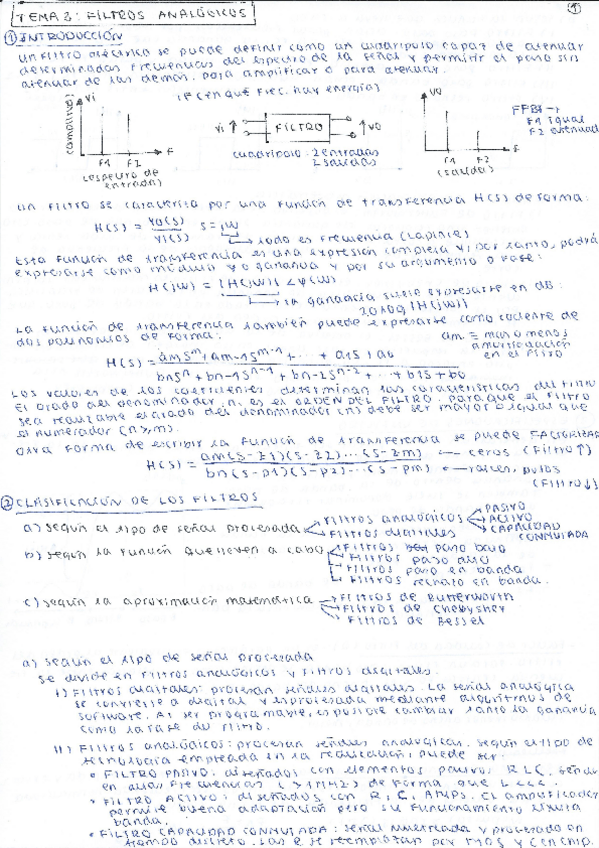 TEMA 3: FILTROS ANALÓGICOS
1
① INTRODUCCIÓN
Un filtro eléctrico se puede definir como un cuadripolo capaz de atenuar
determinadas frecuencias del espectro de la señal y permitir el paso sin
atenuar de las demás. para amplificar o para atenuar.
Vi
(amplitud)
F1 F2 F
(espectro de
entrada)
IF (en qué frec. hay energía)
Vi FILTRO VO
cuadripolo: 2 entradas
2 salidas
VO
F1 F2 F
(salida)
FPB →
F1 igual
F2 atenuad
Un filtro se caracteriza por una función de transferencia H(s) de forma:
H(s) = Vo(s)/Vi(s) s = jω
todo es frecuencia (Laplace)
Esta función de transferencia es una expresión compleja y, por tanto, podrá
expresarse como módulo y/o ganancia y por su argumento o fase:
H(jω) = |H(jω)| ∠φ(ω)
la ganancia suele expresarse en dB:
20 log |H(jω)|
La función de transferencia también puede expresarse como cociente de
dos polinomios de forma:
am = más o menos
amortiguación
en el filtro
H(s) = (am s^m + am-1 s^m-1 + ... + a1s + a0) / (bn s^n + bn-1 s^n-1 + bn-2 s^n-2 + ... + b1s + b0)
Los valores de los coeficientes determinan las características del filtro
El grado del denominador, n, es el ORDEN DEL FILTRO. Para que el filtro
sea realizable el grado del denominador (n) debe ser mayor o igual que
el numerador (n≥m).
Otra forma de escribir la función de transferencia se puede FACTORIZAR
H(s) = am(s-z1)(s-z2)...(s-zm) / bn(s-p1)(s-p2)...(s-pm)
← ceros (Filtro↑)
← raíces, polos
(Filtro↓)
② CLASIFICACIÓN DE LOS FILTROS
a) Según el tipo de señal procesada
Filtros analógicos
PASIVO
ACTIVO
CAPACIDAD
CONMUTADA
Filtros digitales
b) Según la función que lleven a cabo
Filtros paso bajo
Filtros paso alto
Filtros paso en banda
Filtros rechazo en banda.
c) Según la aproximación matemática
Filtros de Butterworth
Filtros de Chebysher
Filtros de Bessel
a) Según el tipo de señal procesada
Se divide en filtros analógicos y filtros digitales.
i) Filtros digitales: procesan señales digitales. La señal analógica
se convierte a digital y es procesada mediante algoritmos de
software. Al ser programable, es posible cambiar tanto la ganancia
como la fase du filtro.
ii) Filtros analógicos: procesan señales analógicas. Según el tipo de
tecnología empleada en la realización, puede ser:
• FILTRO PASIVO: diseñados con elementos pasivos RLC.
en altas frecuencias (>1MHz) de forma que L
• FILTRO ACTIVO: diseñados con R, C, AMPS. El amplificador
permite buena adaptación pero su funcionamiento
banda.
• FILTRO CAPACIDAD CONMUTADA: señal muestreada y procesado en
tiempo discreto. Las R se reemplazan por MOS y C en chip.